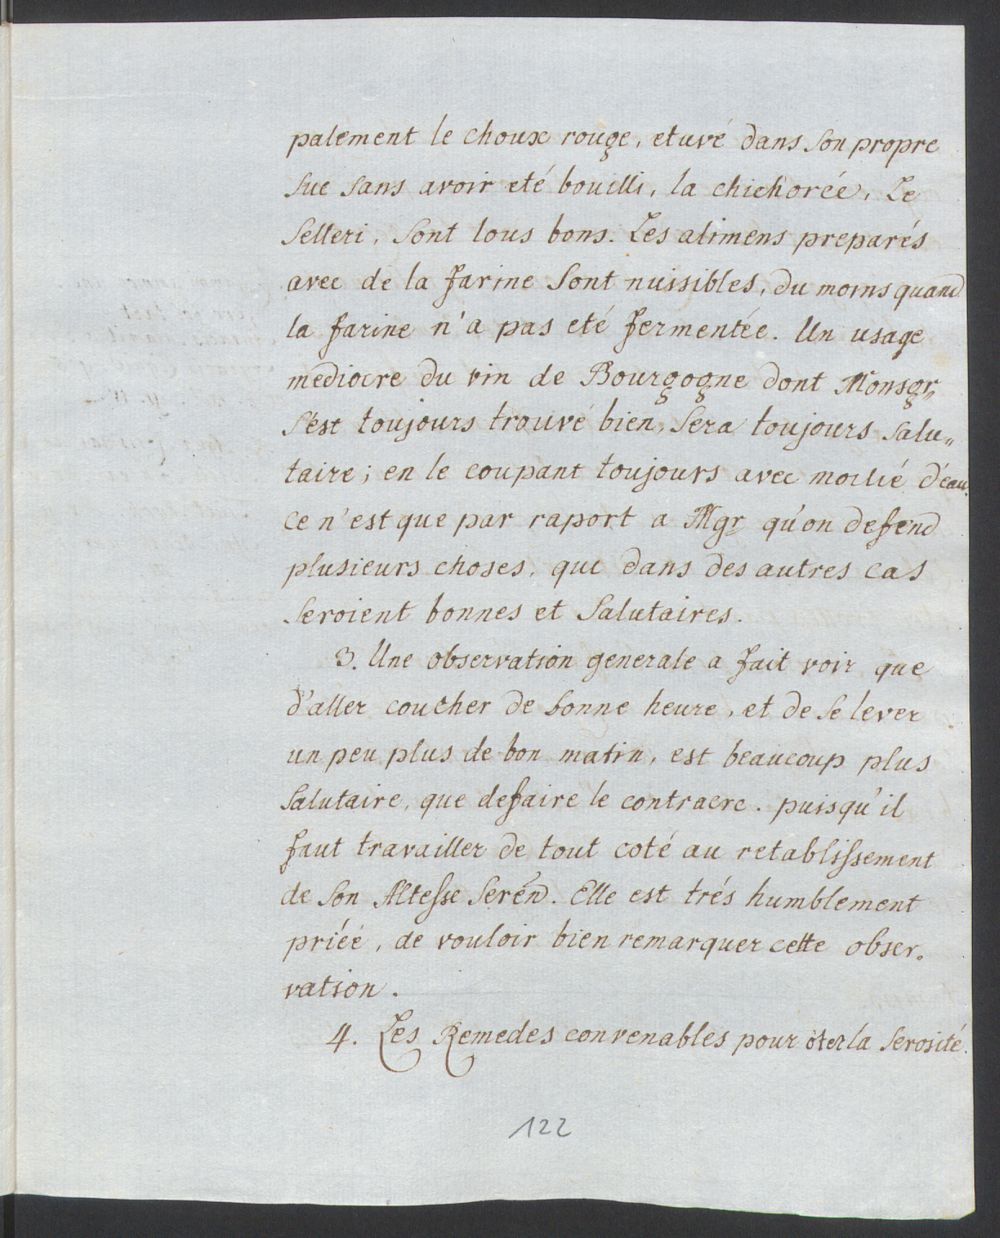 palement le choux rouge, etuvé dans son propre
suc sans avoir eté bouilli, la chichorée, Le
Selleri, sont tous bons. Les alimens preparés
avec de la farine sont nuisibles, du moins quand
la farine n'a pas eté fermentée. Un usage
mediocre du vin de Bourgogne dont Monsgr„
s'est toujours trouvé bien, sera toujours salu„
taire; en le coupant toujours avec moitié d'eau.
Ce n'est que par raport a Mgr qu'on defend
plusieurs choses, que dans des autres cas
seroient bonnes et salutaires.
3. Une observation generale a fait voir que
d'aller coucher de bonne heure, et de se lever
un peu plus de bon matin, est beaucoup plus
salutaire, que defaire le contraere. puisqu'il
faut travailler de tout coté au retablissement
de Son Altesse Serén. Elle est trés humblement
priéé, de vouloir bien remarquer cette obser„
vation.
4. Les Remedes convenables pour ôter la serosité.
122